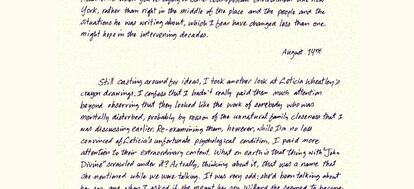 York, rather than right in the middle of the place and the people and the
situations he was writing about, which I fear have changed less than one
might hope in the intervening decades.
August 14TH
Still casting around for ideas, I took another look at Leticia Wheatley's
crayon drawings. I confess that I hadn't really paid them much attention
beyond observing that they looked like the work of somebody who was
mentally disturbed, probably by reason of the unnatural family closeness that I
was discussing earlier. Re-examining them, however, while I'm no less
convinced of Leticia's unfortunate psychological condition, I paid more
attention to their extraordinary content. What on earth is that thing with "John
Divine" scrawled under it? Actually, thinking about it, that was a name that
she mentioned while we were talking. It was very odd: she'd been talking about